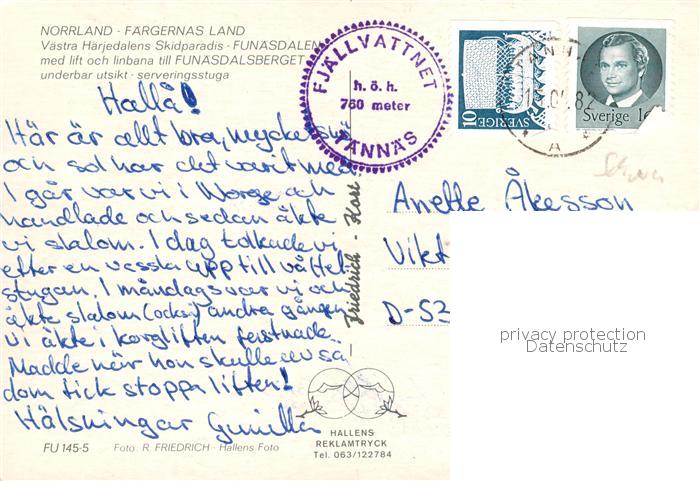 NORRLAND - FÄRGERNAS LAND
Västra Härjedalens Skidparadis - FUNÄSDALEN
med lift och linbana till FUNÄSDALSBERGET
underbar utsikt - serveringsstuga
Hallå!
Här är allt bra, mycket snö
och sol har det varit med.
I går var vi i Norge och
handlade och sedan åkte
vi slalom. I dag tolkade vi
efter en vessla upp till
stugan. I måndags var vi och
åkte slalom (också) andra gången
Vi åkte i korgliften fastnade
Madde när hon skulle av så
dom fick stoppa liften!
Hälsningar Gunilla
FU 145-5 Foto: R. FRIEDRICH - Hallens Foto
FJÄLLVATTNET
h. ö. h.
760 meter
TÄNNÄS
Friedrich - Kort
HALLENS
REKLAMTRYCK
Tel. 063/122784
SVERIGE 10
Sverige
82
A
Anette Åkesson
Vikt
D-52
privacy protection
Datenschutz